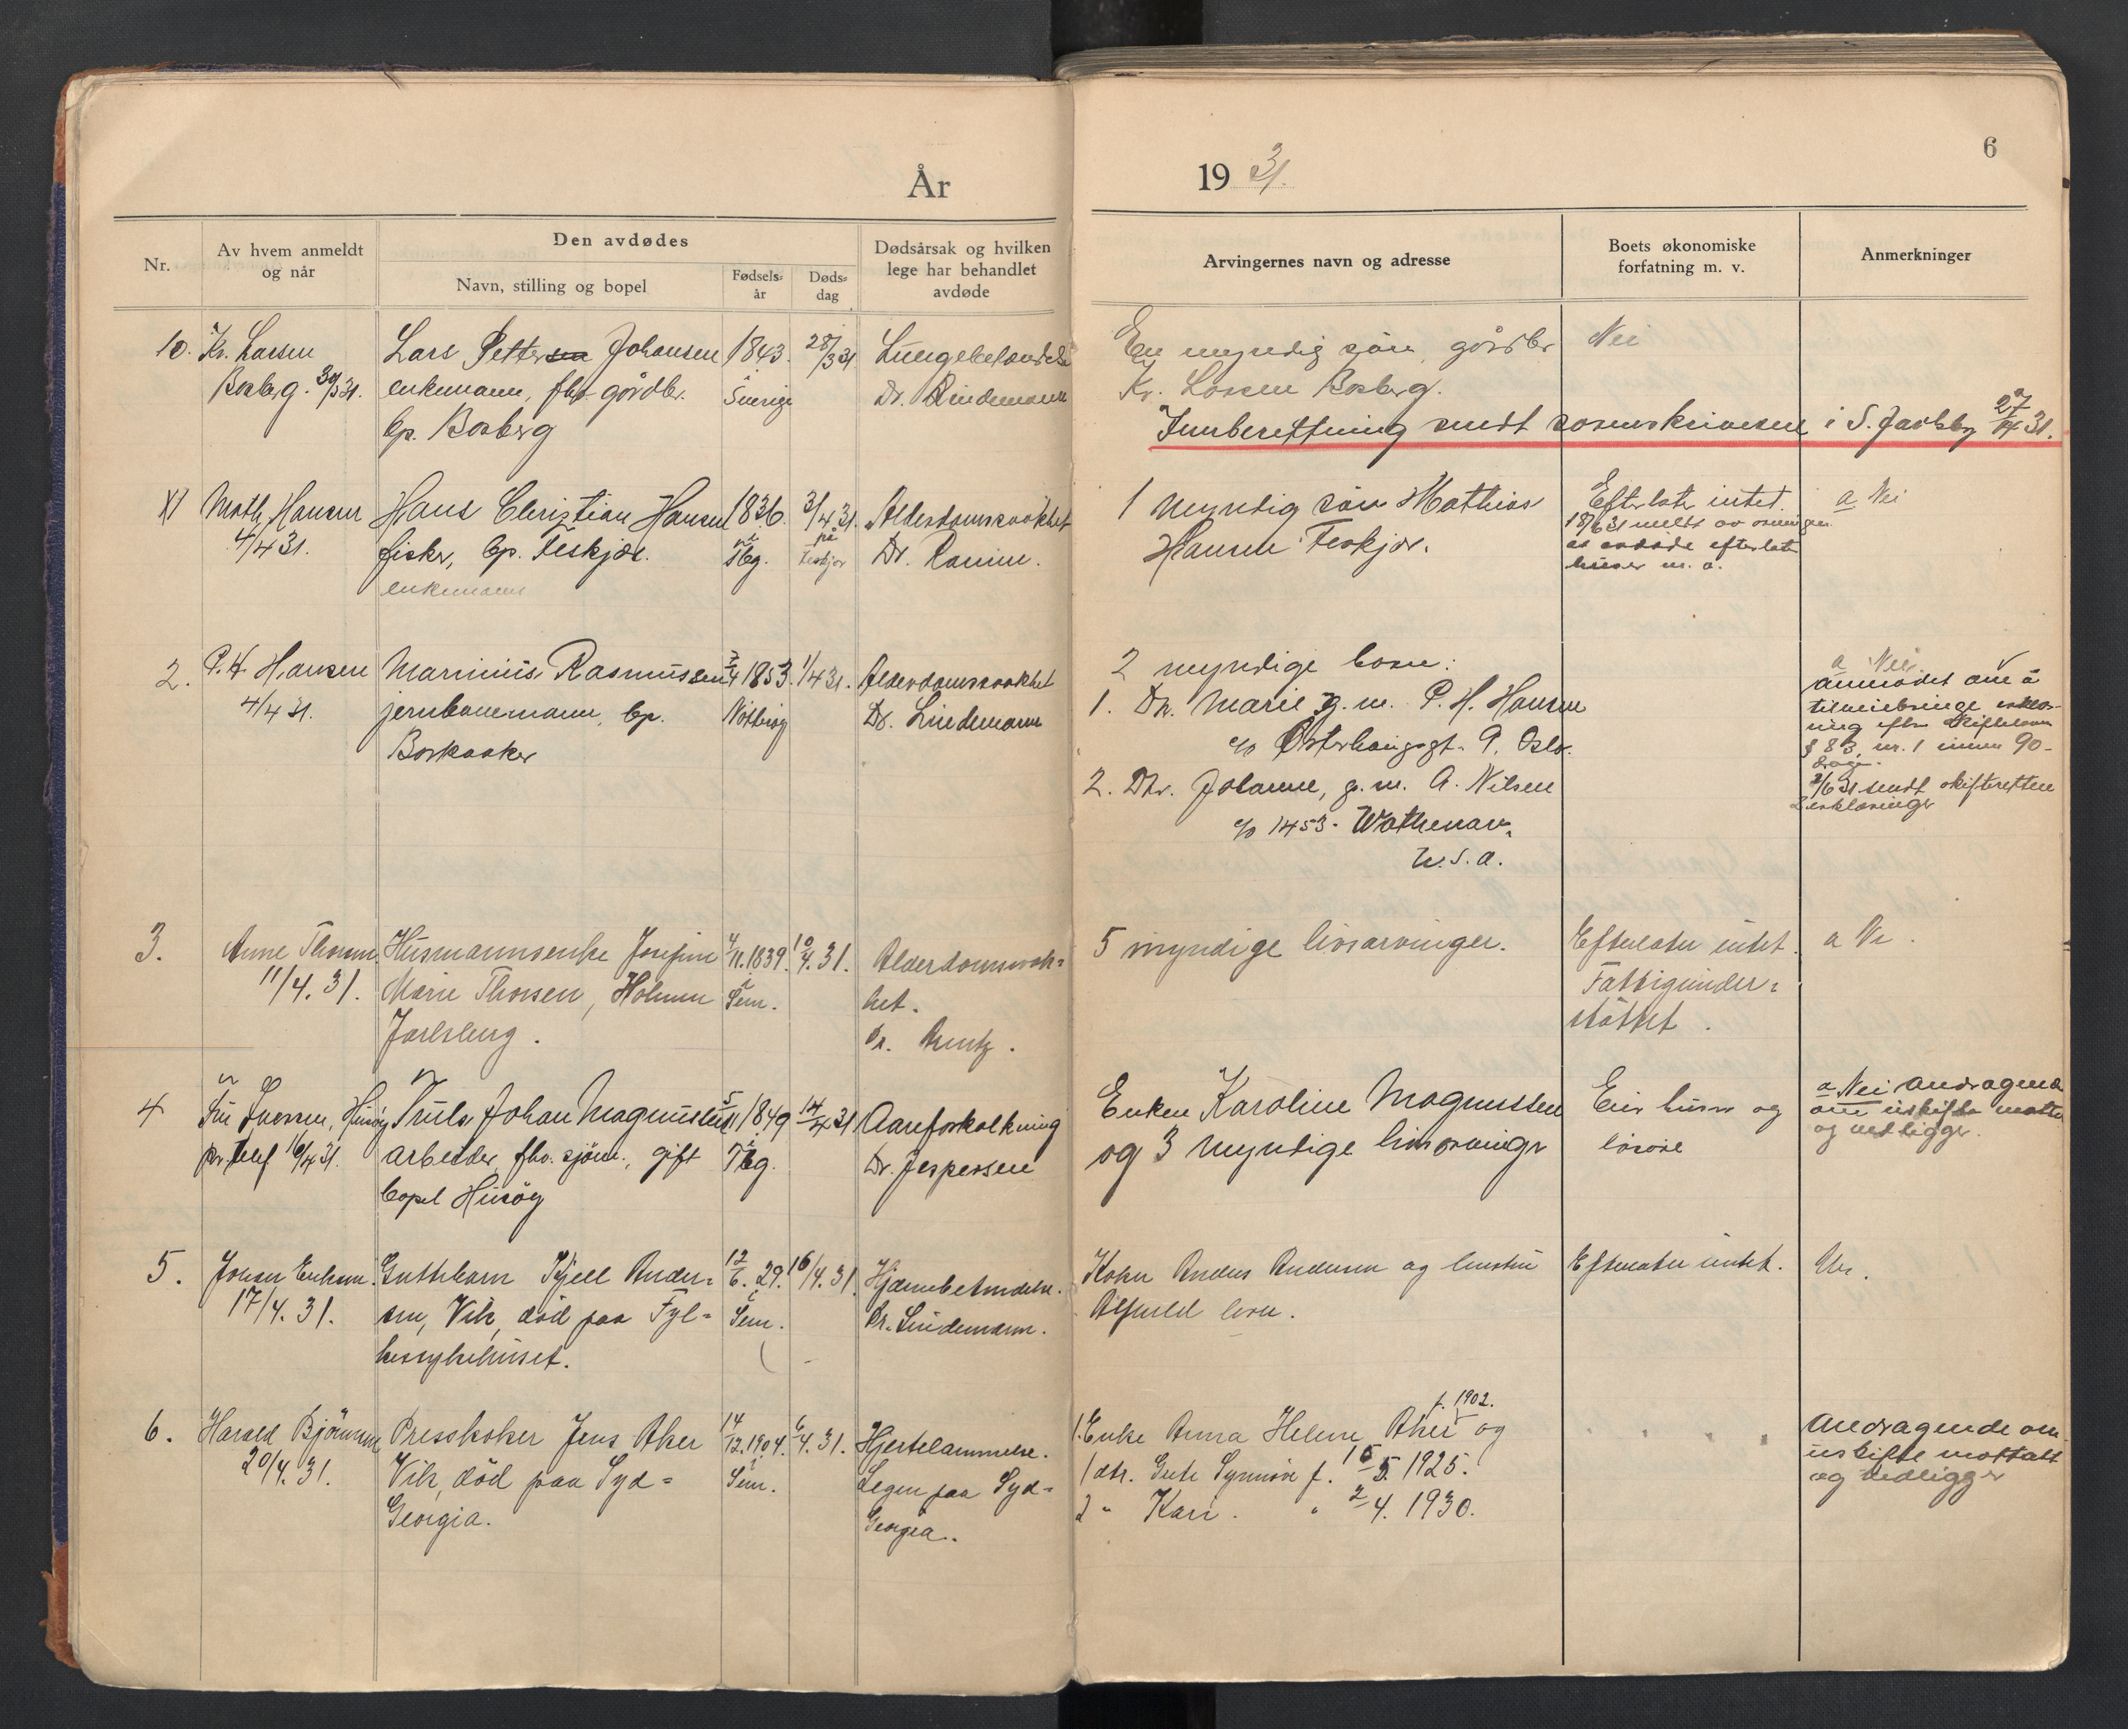 År
19 31.
6
Nr.
Av hvem anmeldt
og når
Den avdødes
Navn, stilling og bopel
Fødsels-
år
Døds-
dag
Dødsårsak og hvilken
lege har behandlet
avdøde
Arvingernes navn og adresse
Boets økonomiske
forfatning m. v.
Anmerkninger
10. Kr. Larsen
Borberg. 30/3 31.
Lars Pettersen Johansen
enkemann, fhv. gårdbr.
bp. Borberg
1843.
i
Sverige
28/3 31.
Lungebetændelse
Dr. Lindemann
En myndig søn, gårdbr
Kr. Larsen Borberg.
Nei
Innberettning sendt sorenskriveren i S. Jarlsberg 27/4 31.
Math. Hansen
4/4 31.
Hans Christian Hansen
fisker, bp. Feskjær.
enkemann
1836.
Tbg.
3/4 31.
på
Feskjær
Alderdomssvakhet
Dr. Ramm.
1 myndig søn Mathias
Hansen Feskjær.
Efterlater intet.
18/6 31 meldt av
at avdøde efterlater
huser m. a.
a Nei
2. P. H. Hansen
4/4 31.
Marinius Rasmussen
jernbanemann, bp.
Barkaaker
1853.
Nøtterøy
1/4 31.
Alderdomssvakhet
Dr. Lindemann
2 myndige barn:
1. Dtr. Marie g. m. P. H. Hansen
c/o Østerhausgt. 9. Oslo.
2. Dtr. Johanne, g. m. A. Nilsen
c/o 1453.
U.S.A.
a Nei
anmodet om å
tilveiebringe erklæ-
ring efter skifteloven
§ 83, nr. 1 innen 90
dage.
2/6 31 sendt skifteretten
2 erklæringer
3.
Anne Thorsen
11/4. 31.
Husmannsenke Josefine
Marie Thorsen, Holmen
Jarlsberg.
4/11. 1839.
i
Sem.
10/4. 31.
Alderdomssvak-
het.
Dr.
5 myndige livsarvinger.
Efterlater intet.
Fattigunder-
støttet.
a Nei.
4
Fru Iversen, Husøy
pr telef 16/4 31.
Truls Johan Magnussen
arbeider, fhv. sjøm., gift
bopel Husøy
5/11 1849
i
Tbg.
14/4 31
Aareforkalkning
Dr. Jespersen
Enken Karoline Magnussen
og 3 myndige livsarvinger
Eier hus og
løsøre
a Nei Andragende
om uskifte mottatt
og vedligger.
5.
Johan Eriksen.
17/4. 31.
Guttebarn Kjell Ander-
sen, Vik, død paa Fyl-
kessykehuset.
12/6. 29.
i
Sem.
16/4. 31.
Hjernebetændelse.
Dr. Lindemann.
Koker Anders Andersen og hustru
Efterlater intet.
Nei.
6.
Harald Bjønnes
20/4. 31.
Presskoker Jens Aker
Vik, død paa Syd-
Georgia.
14/12. 1904.
i
Sem.
6/4. 31.
Hjertelammelse.
Legen paa Syd-
Georgia.
f. 1902.
1. Enke Anna Helene Aker og
1 dtr. Gute Synnøve f. 15/5. 1925.
2 " Kari. " 2/4. 1930.
Andragende om
uskifte mottatt
og vedligger